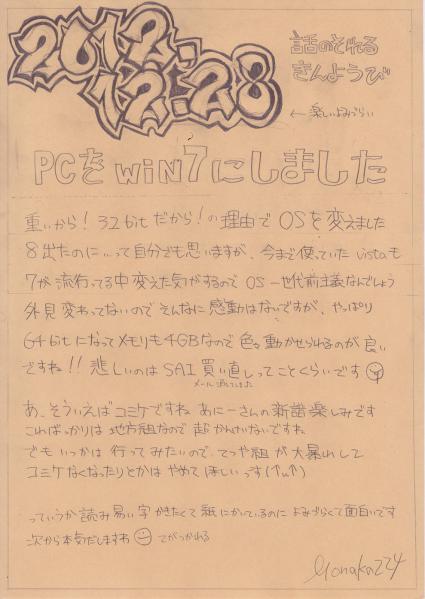 2012.
12.28
話のそれる
きんようび
← 楽しいよみづらい
PCをWiN7にしました
重いから! 32bitだから!の理由でOSを変えました
8出たのにいって自分でも思いますが、今まで使っていたvistaも
7が流行ってる中変えた気がするのでOS一世代前主義なんでしょう
外見変わってないのでそんなに感動はないですが、やっぱり
64bitになってメモリも4GBなので色々動かせられるのが良い
ですね!! 悲しいのはSAI買い直しってことくらいです
メール消してました
あ、そういえばコミケですね あにーさんの新譜楽しみです
こればっかりは地方組なので超かんけいないですね
でもいつかは行ってみたいので、てつや組が大暴れして
コミケなくなったりとかはやめてほしいっす(↑ω↑)
っていうか読み易い字かきたくて紙にかいているのによみづらくて面白いです
次から本気だしますわ てがつかれる
Monaka224